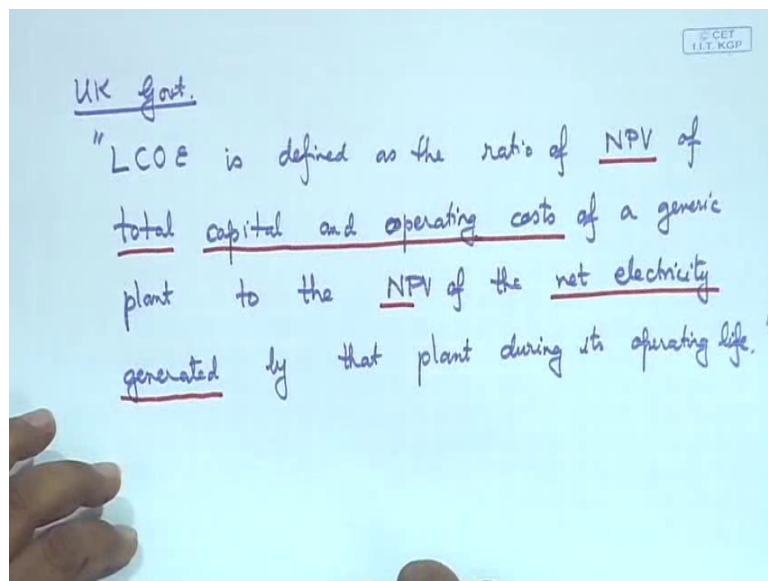 © CET
I.I.T. KGP
UK Govt.
"LCOE is defined as the ratio of NPV of
total capital and operating costs of a generic
plant to the NPV of the net electricity
generated by that plant during its operating life."